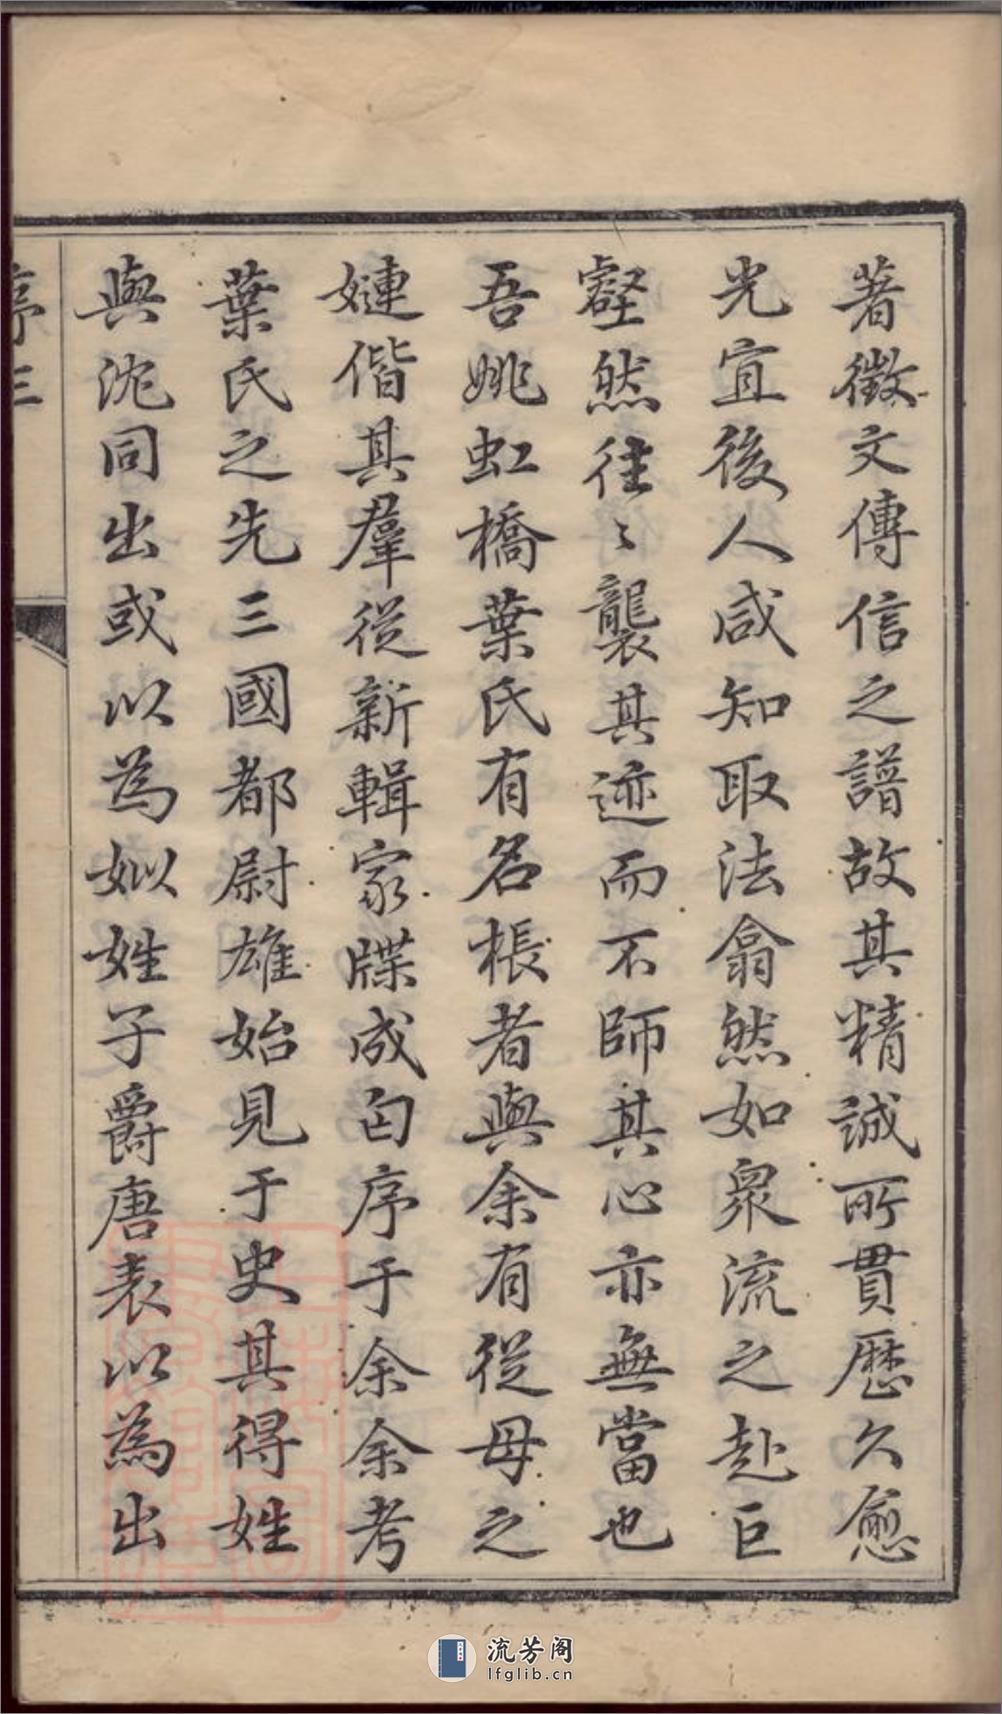 著徵文傳信之譜故其精誠所貫歷久愈
光宜後人咸知取法翕然如衆流之赴巨
壑然往〻襲其迹而不師其心亦無當也
吾姚虹橋葉氏有名棖者與余有從母之
嫌偕其羣從新輯家牒成匄序于余余考
葉氏之先三國都尉雄始見于史其得姓
與沈同出或以為姒姓子爵唐表以為出
序三
流芳阁
lfglib.cn